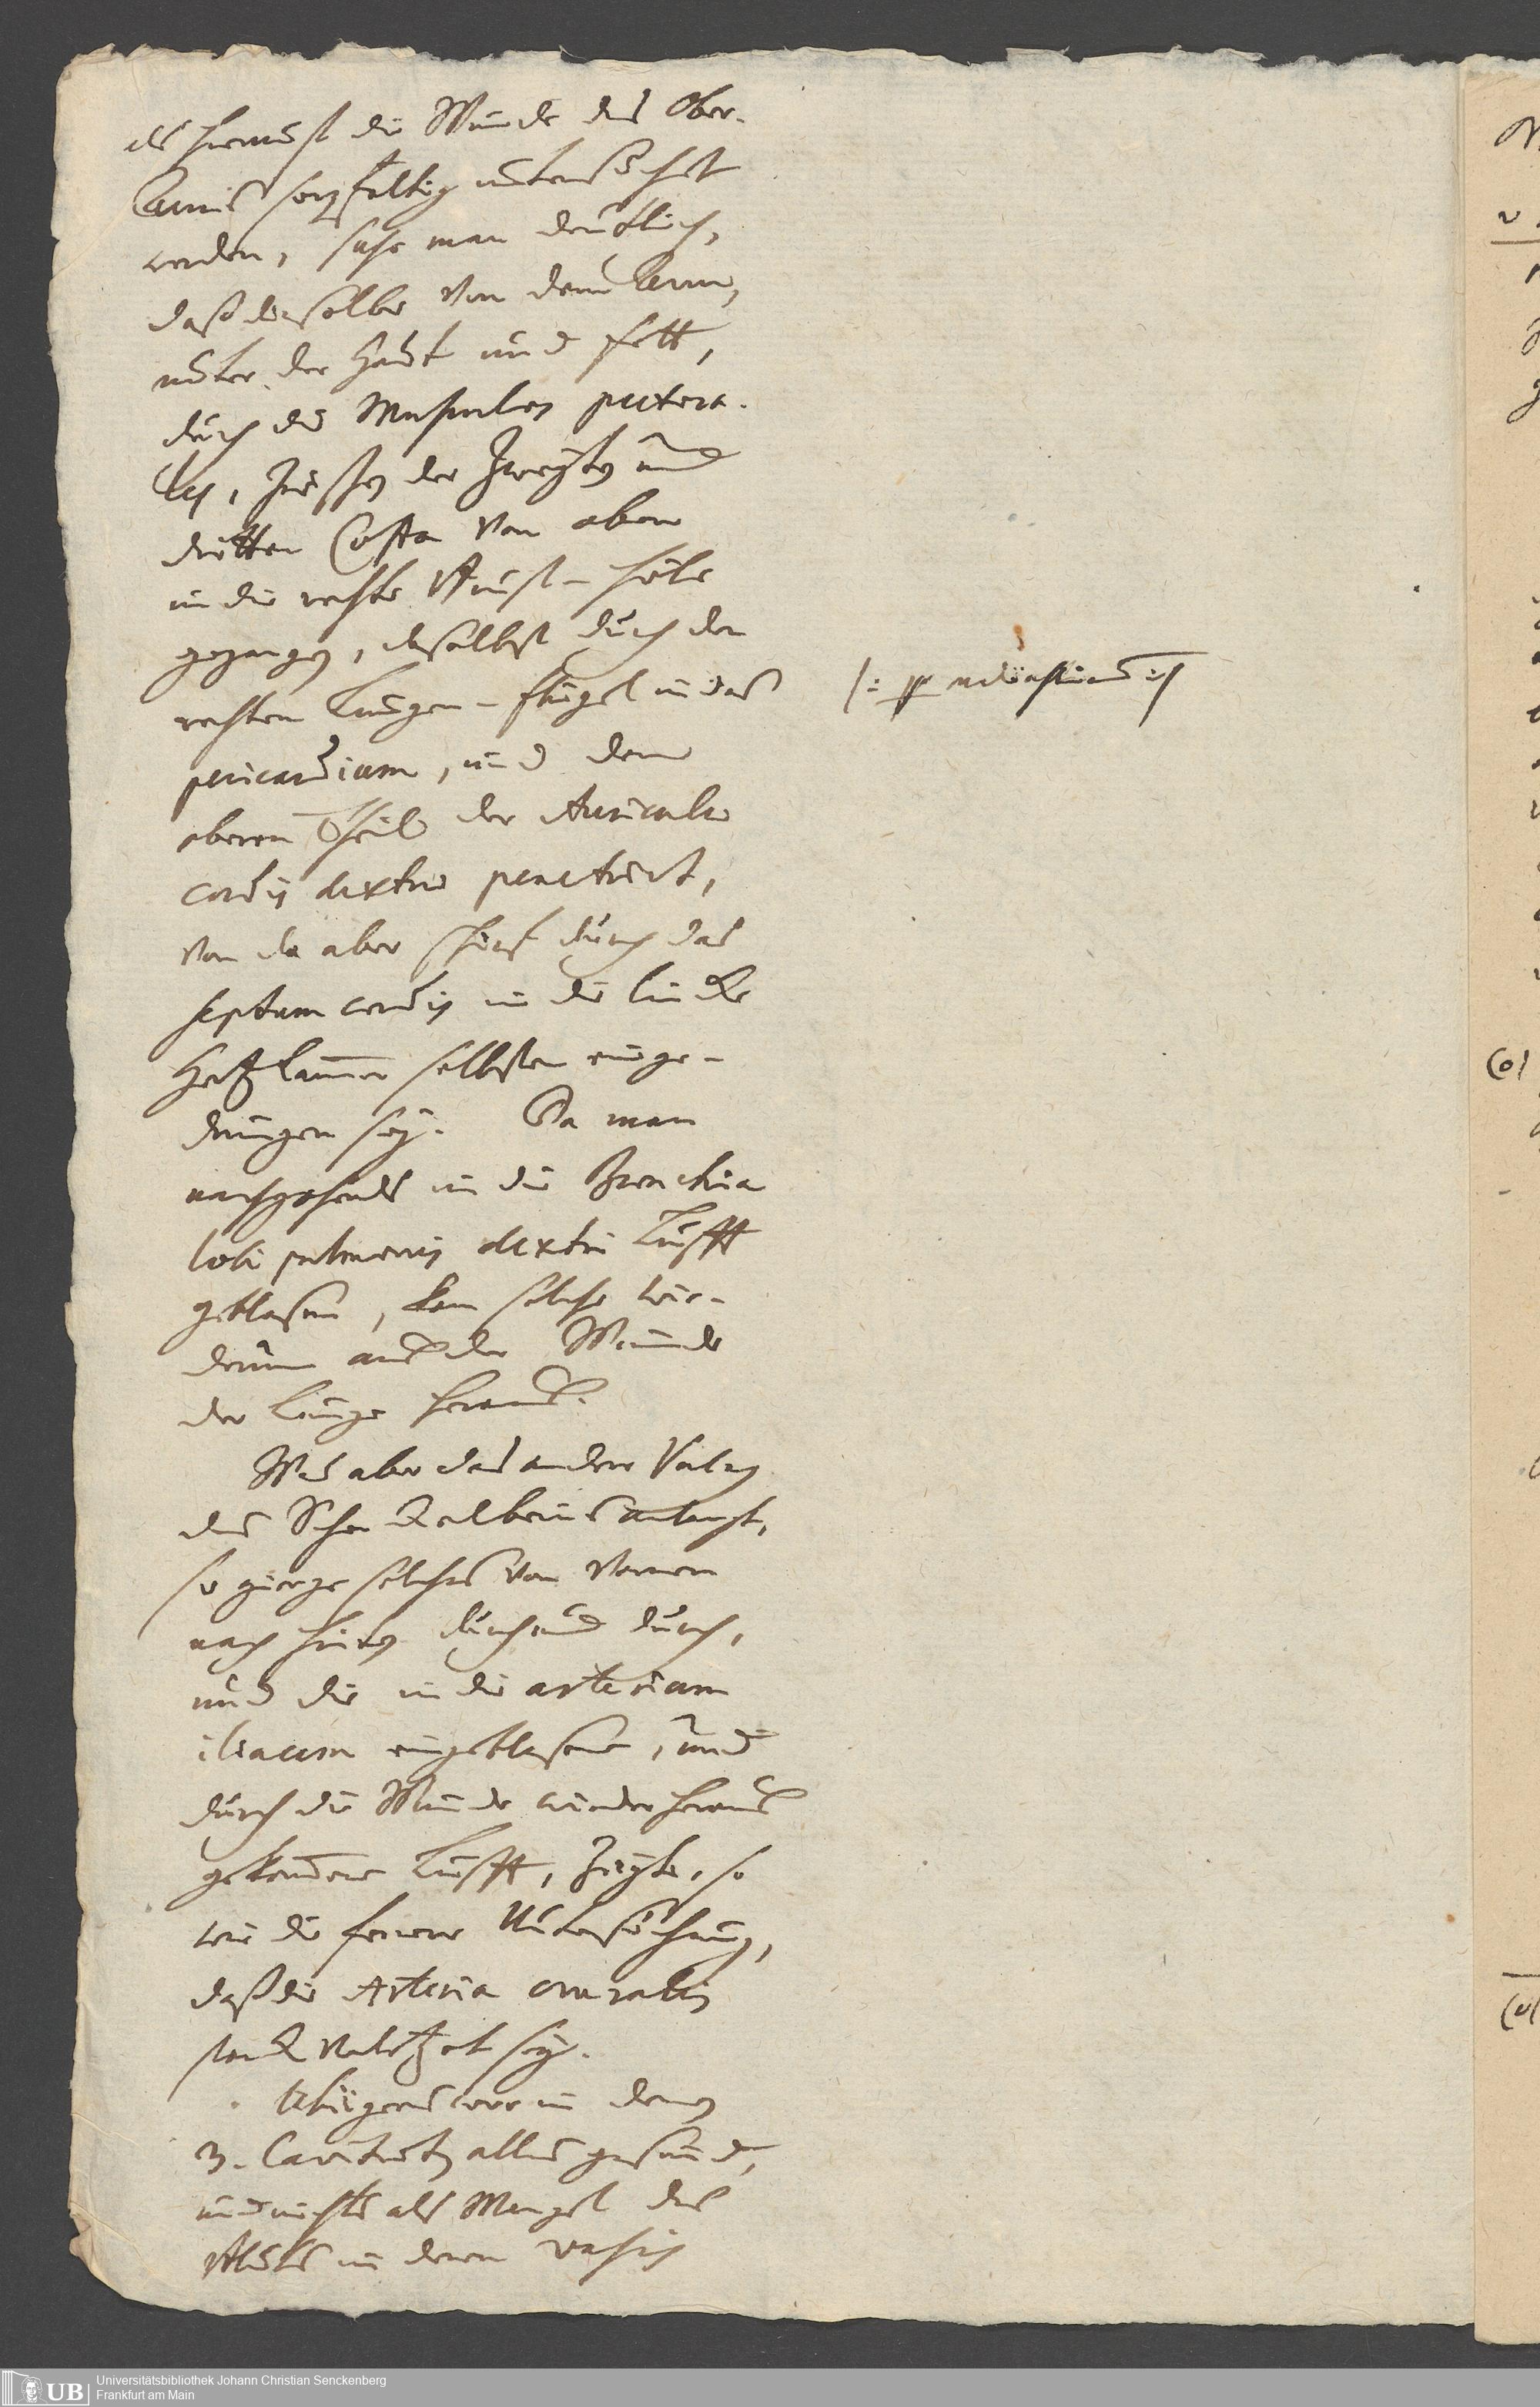 als hiernechst die Wunde des Ober-
Arms sorgfältig untersuchet
worden, sahe man deutlich,
daß dieselbe von dem Arm,
unter der Haut und Fett,
durch die Musculos pectora-
les, zwischen der zweyten und
dritten Costa von oben
in die rechte Brust-höle
gegangen, daselbst durch den
rechten Lungen-flügel in das
|: pp mediastinum :|
pericardium, und dem
oberen Theil der Auriculae
cordis dextrae penetrirt,
von da aber schief durch das
septum cordis in die lincke
Hertzkammer selbsten einge-
drungen sey. Da man
nachgehends in die Bronchia
lobi pulmonis dextri Lufft
geblasen, kam solche wie-
derum aus der Wunde
der Lunge heraus.
Was aber das andere Vulnus
des Schenckelbeins anlangt,
so gienge solches von vornen
nach hinten durch und durch,
und die in die arteriam
iliacam eingeblasene, und
durch die Wunde wieder heraus
gekommene Lufft, zeigte, so
wie die fernere Untersuchung,
daß die Arteria cruralis
starck verletzet sey.
Übrigens ware in denen
3. Cavitaeten alles gesund,
und nichts als Mangel des
Bluts in denen vasis
Universitätsbibliothek Johann Christian Senckenberg
Frankfurt am Main